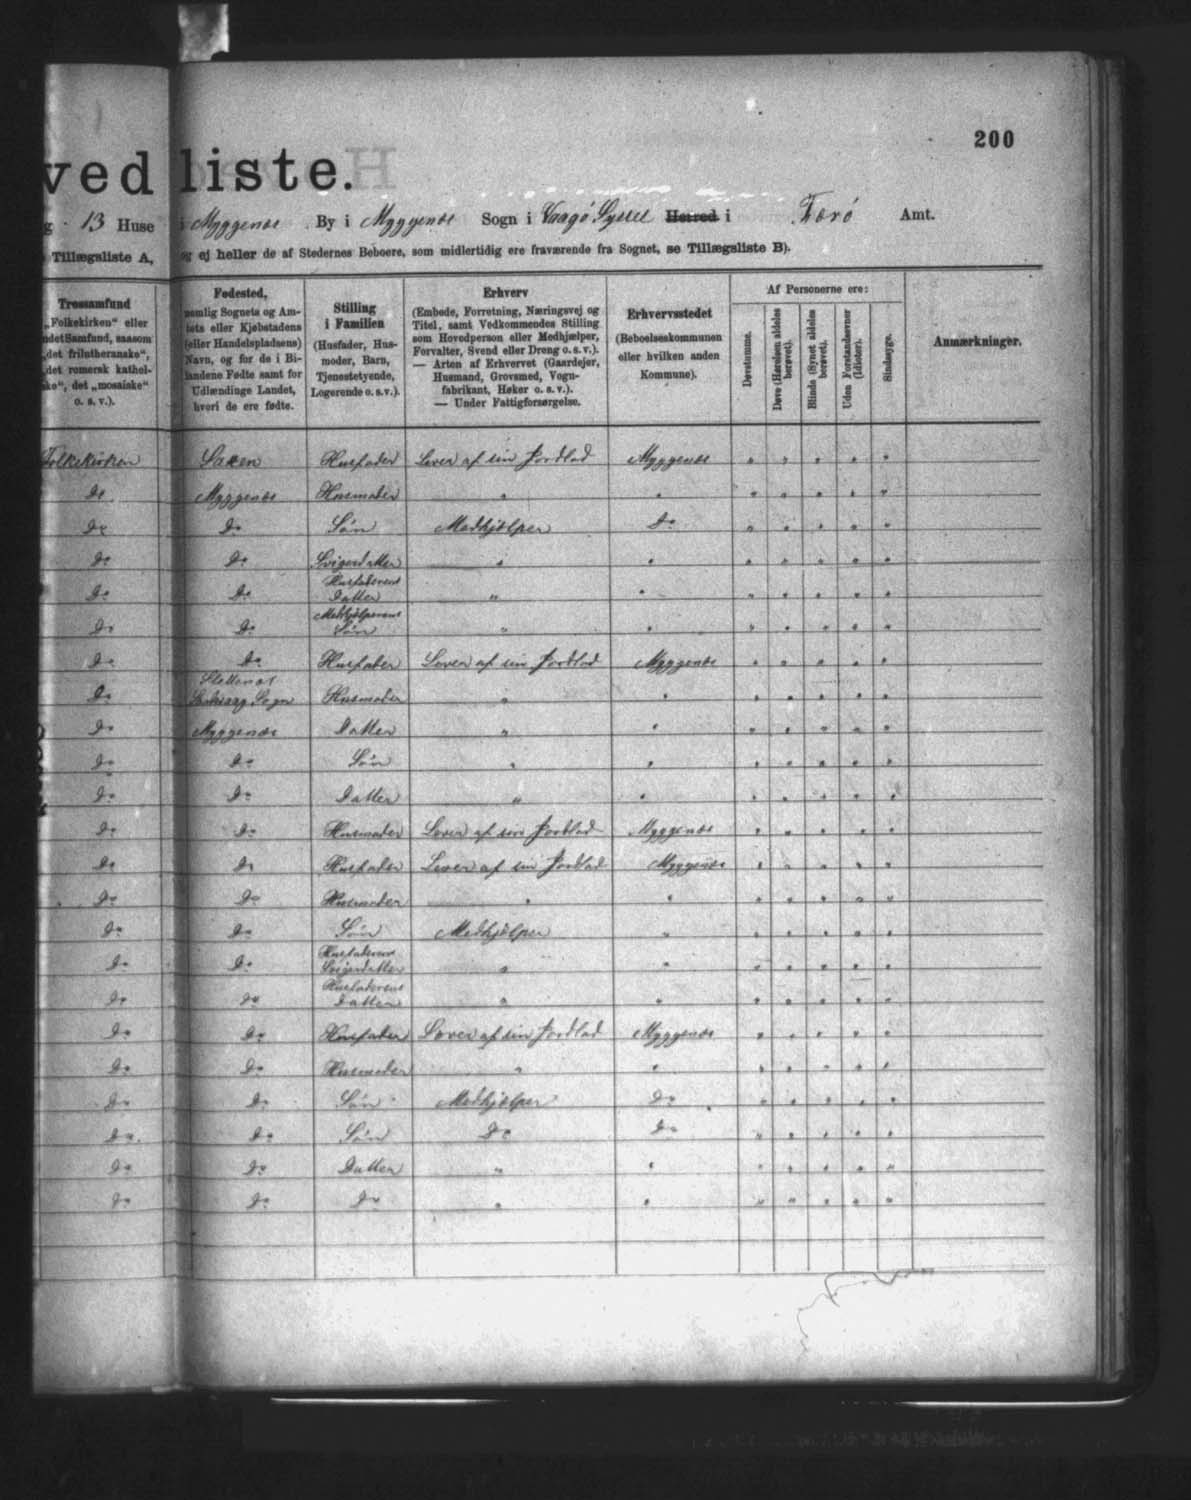 200
ved liste.
g 13 Huse i Myggenæs By i Myggenæs Sogn i Vaagø Syssel Herred i Færø Amt.
Tillægsliste A, og ej heller de af Stedernes Beboere, som midlertidig ere fraværende fra Sognet, se Tillægsliste B).
Trossamfund
„Folkekirken" eller
ndet Samfund, saasom
„det frilutheranske",
„det romersk kathol-
ske", det „mosaiske"
o. s. v.).
Fødested,
nemlig Sognets og Am-
tets eller Kjøbstadens
(eller Handelspladsens)
Navn, og for de i Bi-
landene Fødte samt for
Udlændinge Landet,
hvori de ere fødte.
Stilling
i Familien
(Husfader, Hus-
moder, Barn,
Tjenestetyende,
Logerende o. s. v.).
Erhverv
(Embede, Forretning, Næringsvej og
Titel, samt Vedkommendes Stilling
som Hovedperson eller Medhjælper,
Forvalter, Svend eller Dreng o. s. v.).
— Arten af Erhvervet (Gaardejer,
Husmand, Grovsmed, Vogn-
fabrikant, Høker o. s. v.).
— Under Fattigforsørgelse.
Erhvervsstedet
(Beboelseskommunen
eller hvilken anden
Kommune).
Af Personerne ere:
Døvstumme.
Døve (Hørelsen aldeles
berøvet).
Blinde (Synet aldeles
berøvet).
Uden Forstandsevner
(Idioter).
Sindssyge.
Anmærkninger.
Folkekirken Husfader Lever af sin Jordlod Myggenæs " " " " "
Do Myggenæs Husmoder " " " " " " "
Do Do Søn Medhjælper Do " " " " "
Do Do Svigerdatter " " " " " " "
Do Do Husfaderens Datter " " " " " " "
Do Do Medhjælperens Søn " " " " " " "
Do Do Husfader Lever af sin Jordlod Myggenæs " " " " "
Do Sogn Husmoder " " " " " " "
Do Myggenæs Datter " " " " " " "
Do Do Søn " " " " " " "
Do Do Datter " " " " " " "
Do Do Husmoder Lever af sin Jordlod Myggenæs " " " " "
Do Do Husfader Lever af sin Jordlod Myggenæs " " " " "
Do Do Husmoder " " " " " " "
Do Do Søn Medhjælper " " " " " "
Do Do Husfaderens Svigerdatter " " " " " " "
Do Do Husfaderens Datter " " " " " " "
Do Do Husfader Lever af sin Jordlod Myggenæs " " " " "
Do Do Husmoder " " " " " " "
Do Do Søn Medhjælper Do " " " " "
Do Do Søn Do Do " " " " "
Do Do Datter " " " " " " "
Do Do Do " " " " " " "